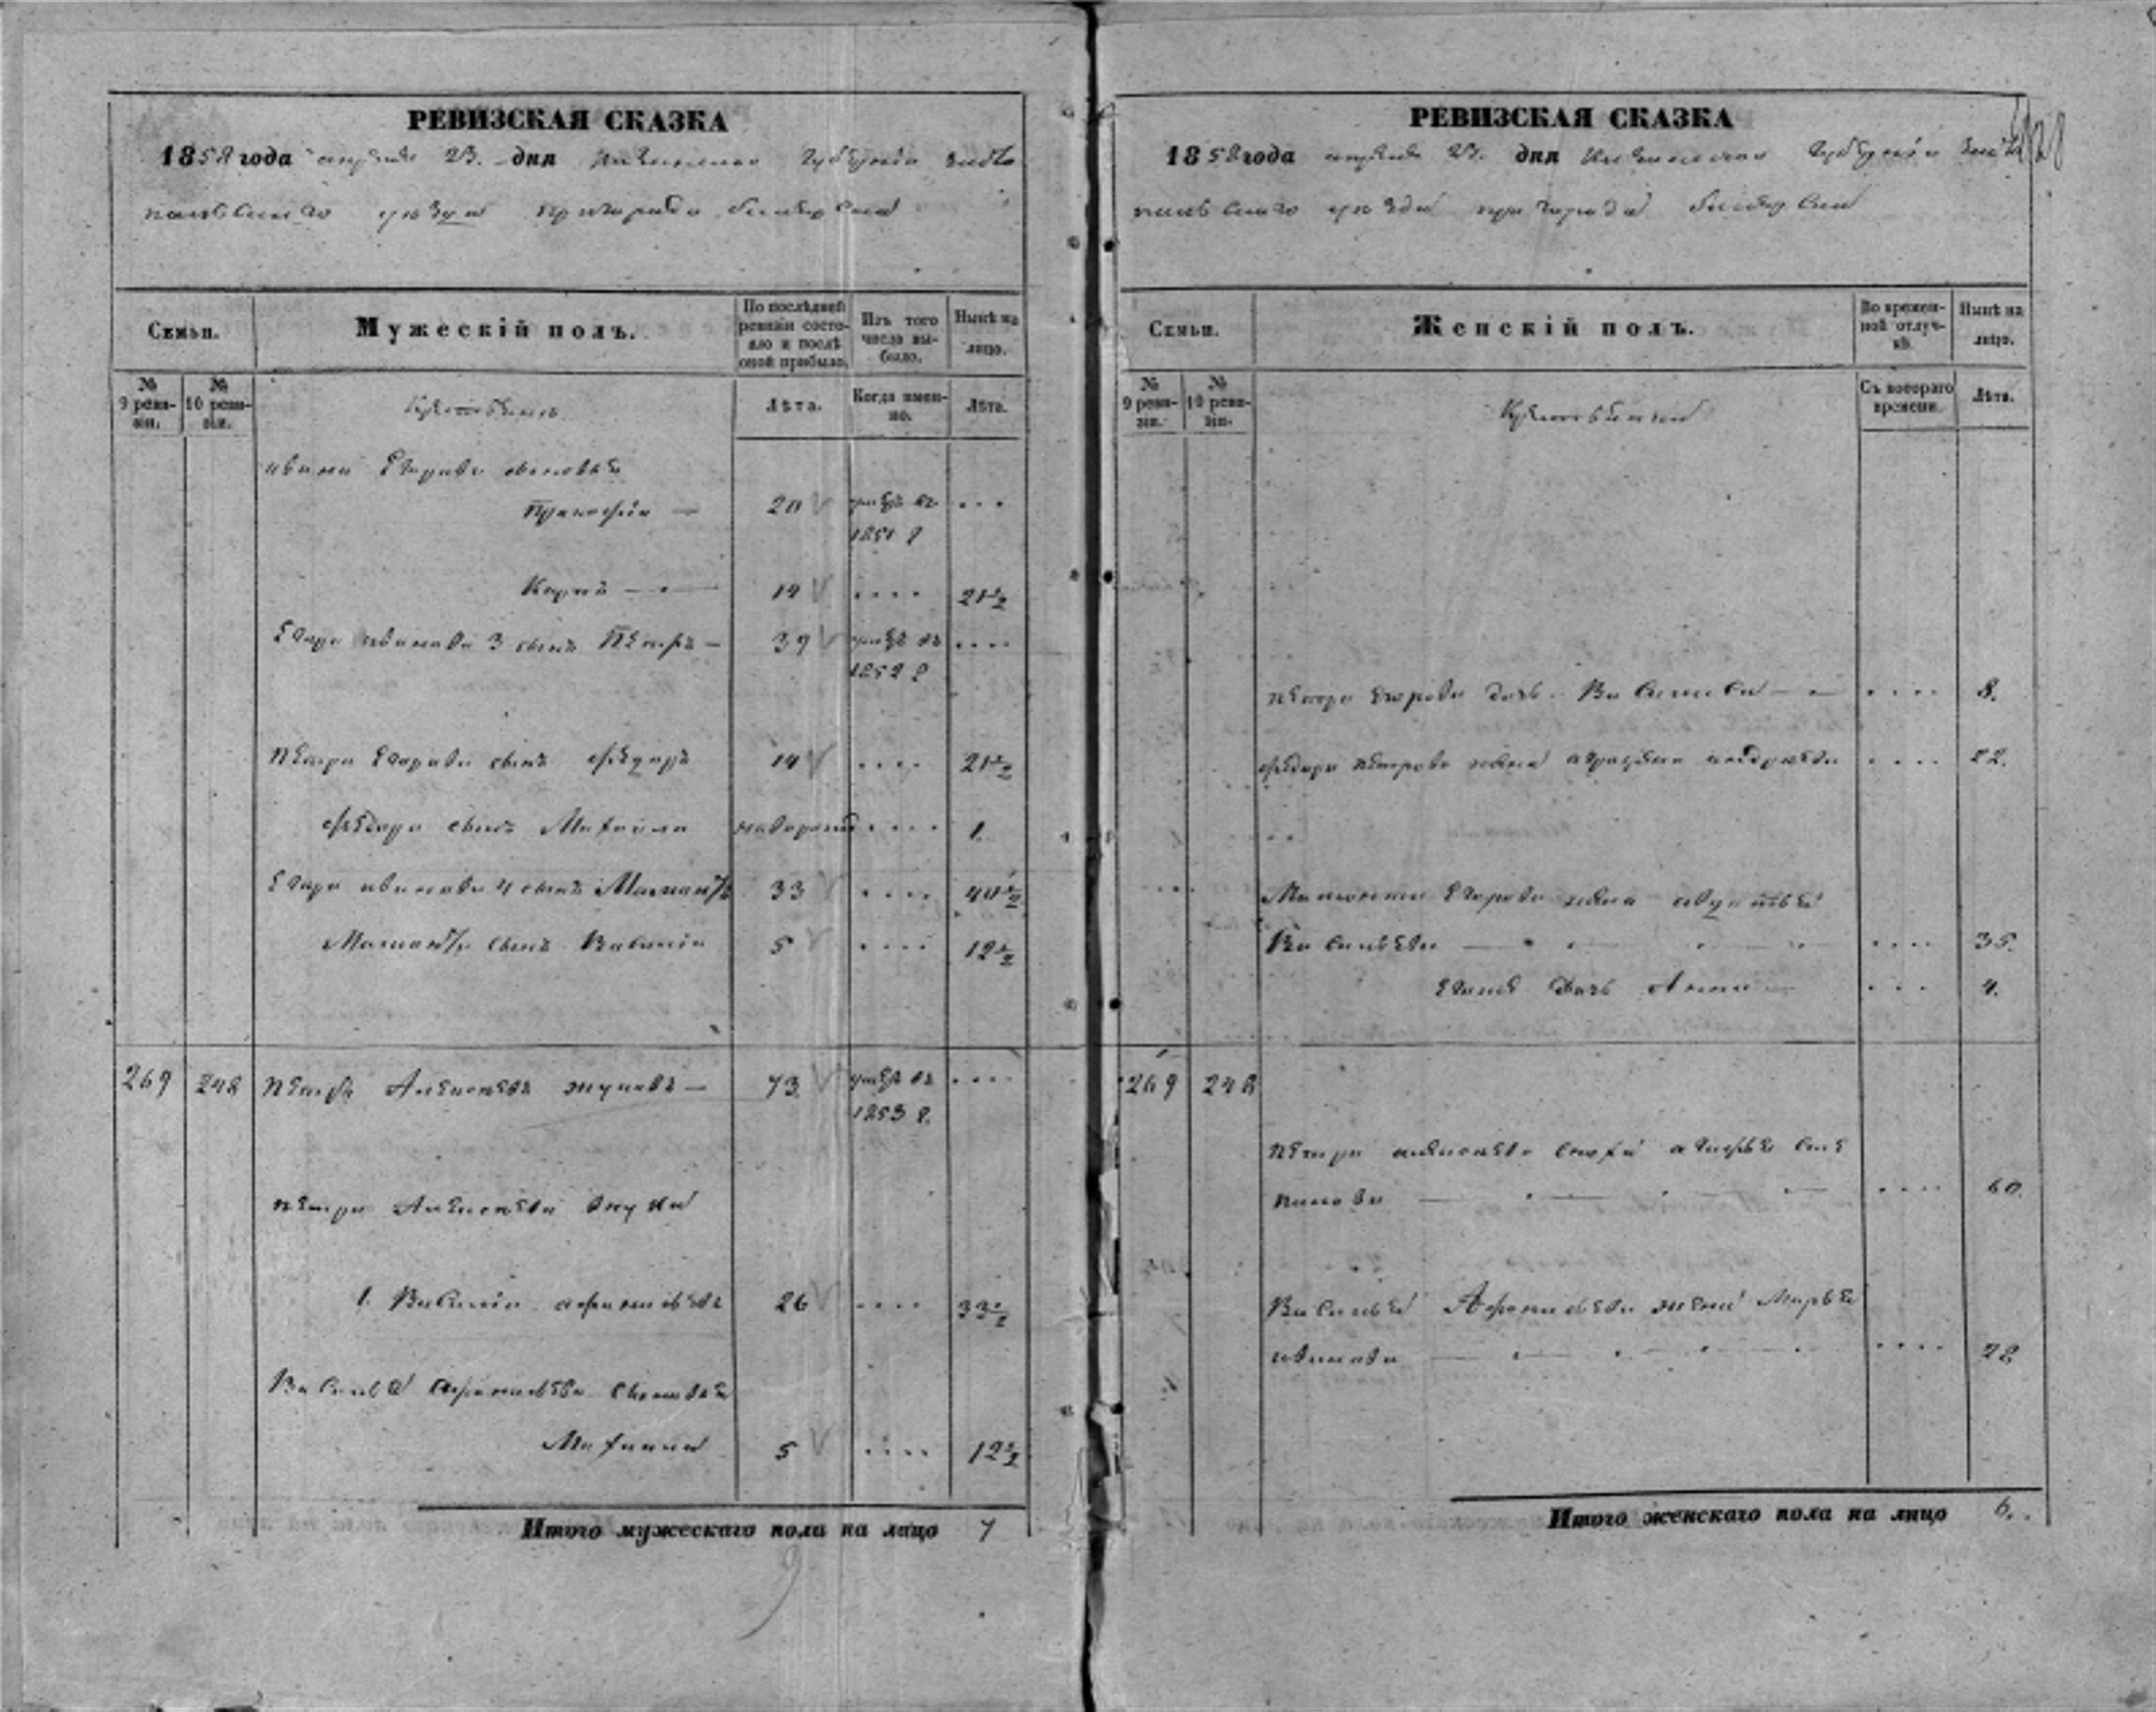 РЕВИЗСКАЯ СКАЗКА
1858 года апреля 23. дня Казанской Губернии Чисто
польского уезда пригорода Билярска
Семьи.
Мужескій полъ.
По послѣдней ревизіи состояло и послѣ оной прибыло.
Изъ того числа выбыло.
Нынѣ на лицо.
№ 9 ревизіи.
№ 10 ревизіи.
Лѣта.
Когда именно.
Лѣта.
Ивана Егорова сыновья
Прокофій — 20 умеръ въ 1851 г. ...
14 .... 21½
Егора Иванова 3 сынъ Петръ — 39 умеръ въ 1852 г. ....
Петра Егорова сынъ Федоръ 14 .... 21½
Федора сынъ Михайла .... 1.
Егора Иванова 4 сынъ 33 .... 40½
сынъ Василій 5 .... 12½
269 248 Петръ Алексеевъ — 73 умеръ въ 1853 г. ....
Петра Алексеева внуки
1. Василій Афонасьевъ 26 .... 33½
Василья Афонасьева сыновья
Михаила 5 .... 12½
Итого мужескаго пола на лицо 7
9
РЕВИЗСКАЯ СКАЗКА
1858 года апреля 23. дня Казанской Губернии Чисто
польского уезда пригорода Билярска
Семьи.
Женскій полъ.
Во временной отлучкѣ.
Нынѣ на лицо.
№ 9 ревизіи.
№ 10 ревизіи.
Съ котораго времени.
Лѣта.
Петра Егорова дочь Василиса — .... 8.
Федора Петрова жена .... 22.
Егорова жена Авдотья
Васильева — .... 35.
дочь Анна — ... 4.
269 248
Петра Алексеева сноха
.... 60.
Василья Афонасьева жена Марья
Иванова — .... 28
Итого женскаго пола на лицо 6.